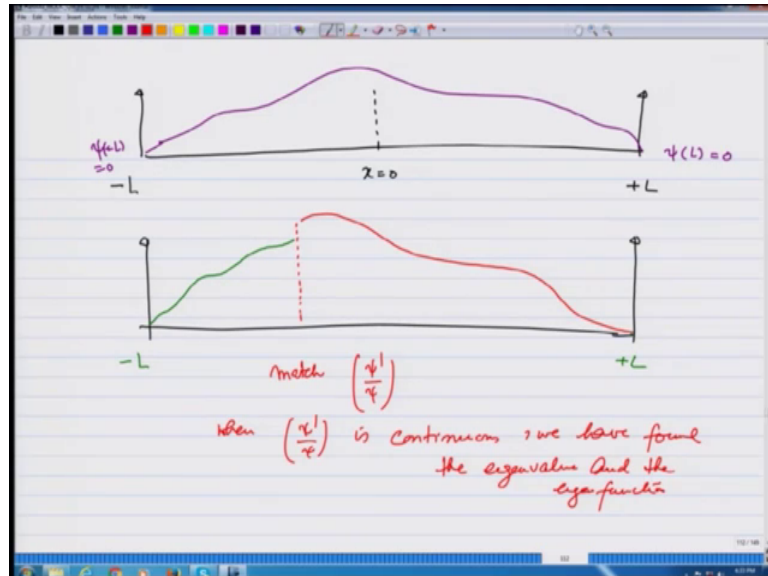 File Edit View Insert Actions Tools Help
ψ(-L)
=0
ψ(L) = 0
-L
x=0
+L
-L
+L
match (ψ'/ψ)
when (ψ'/ψ) is continuous, we have found
the eigenvalue and the
eigenfunction
4:23 PM